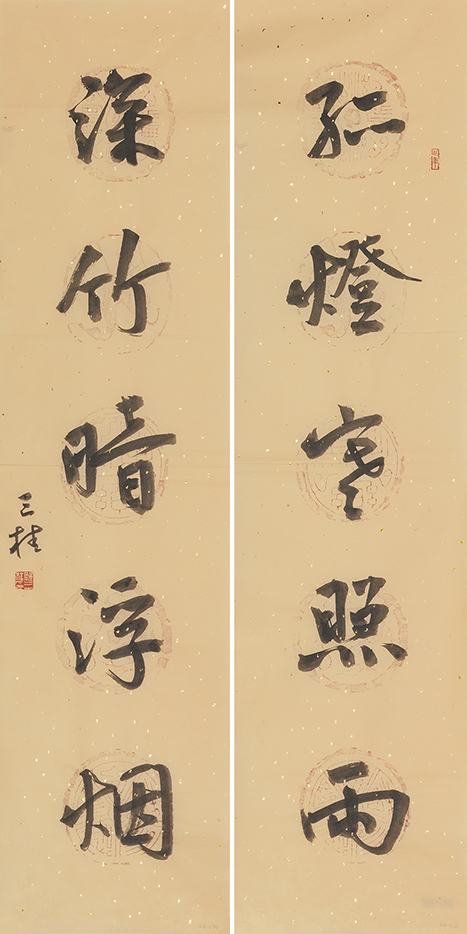 孤燈寒照雨
深竹暗浮烟
三桂